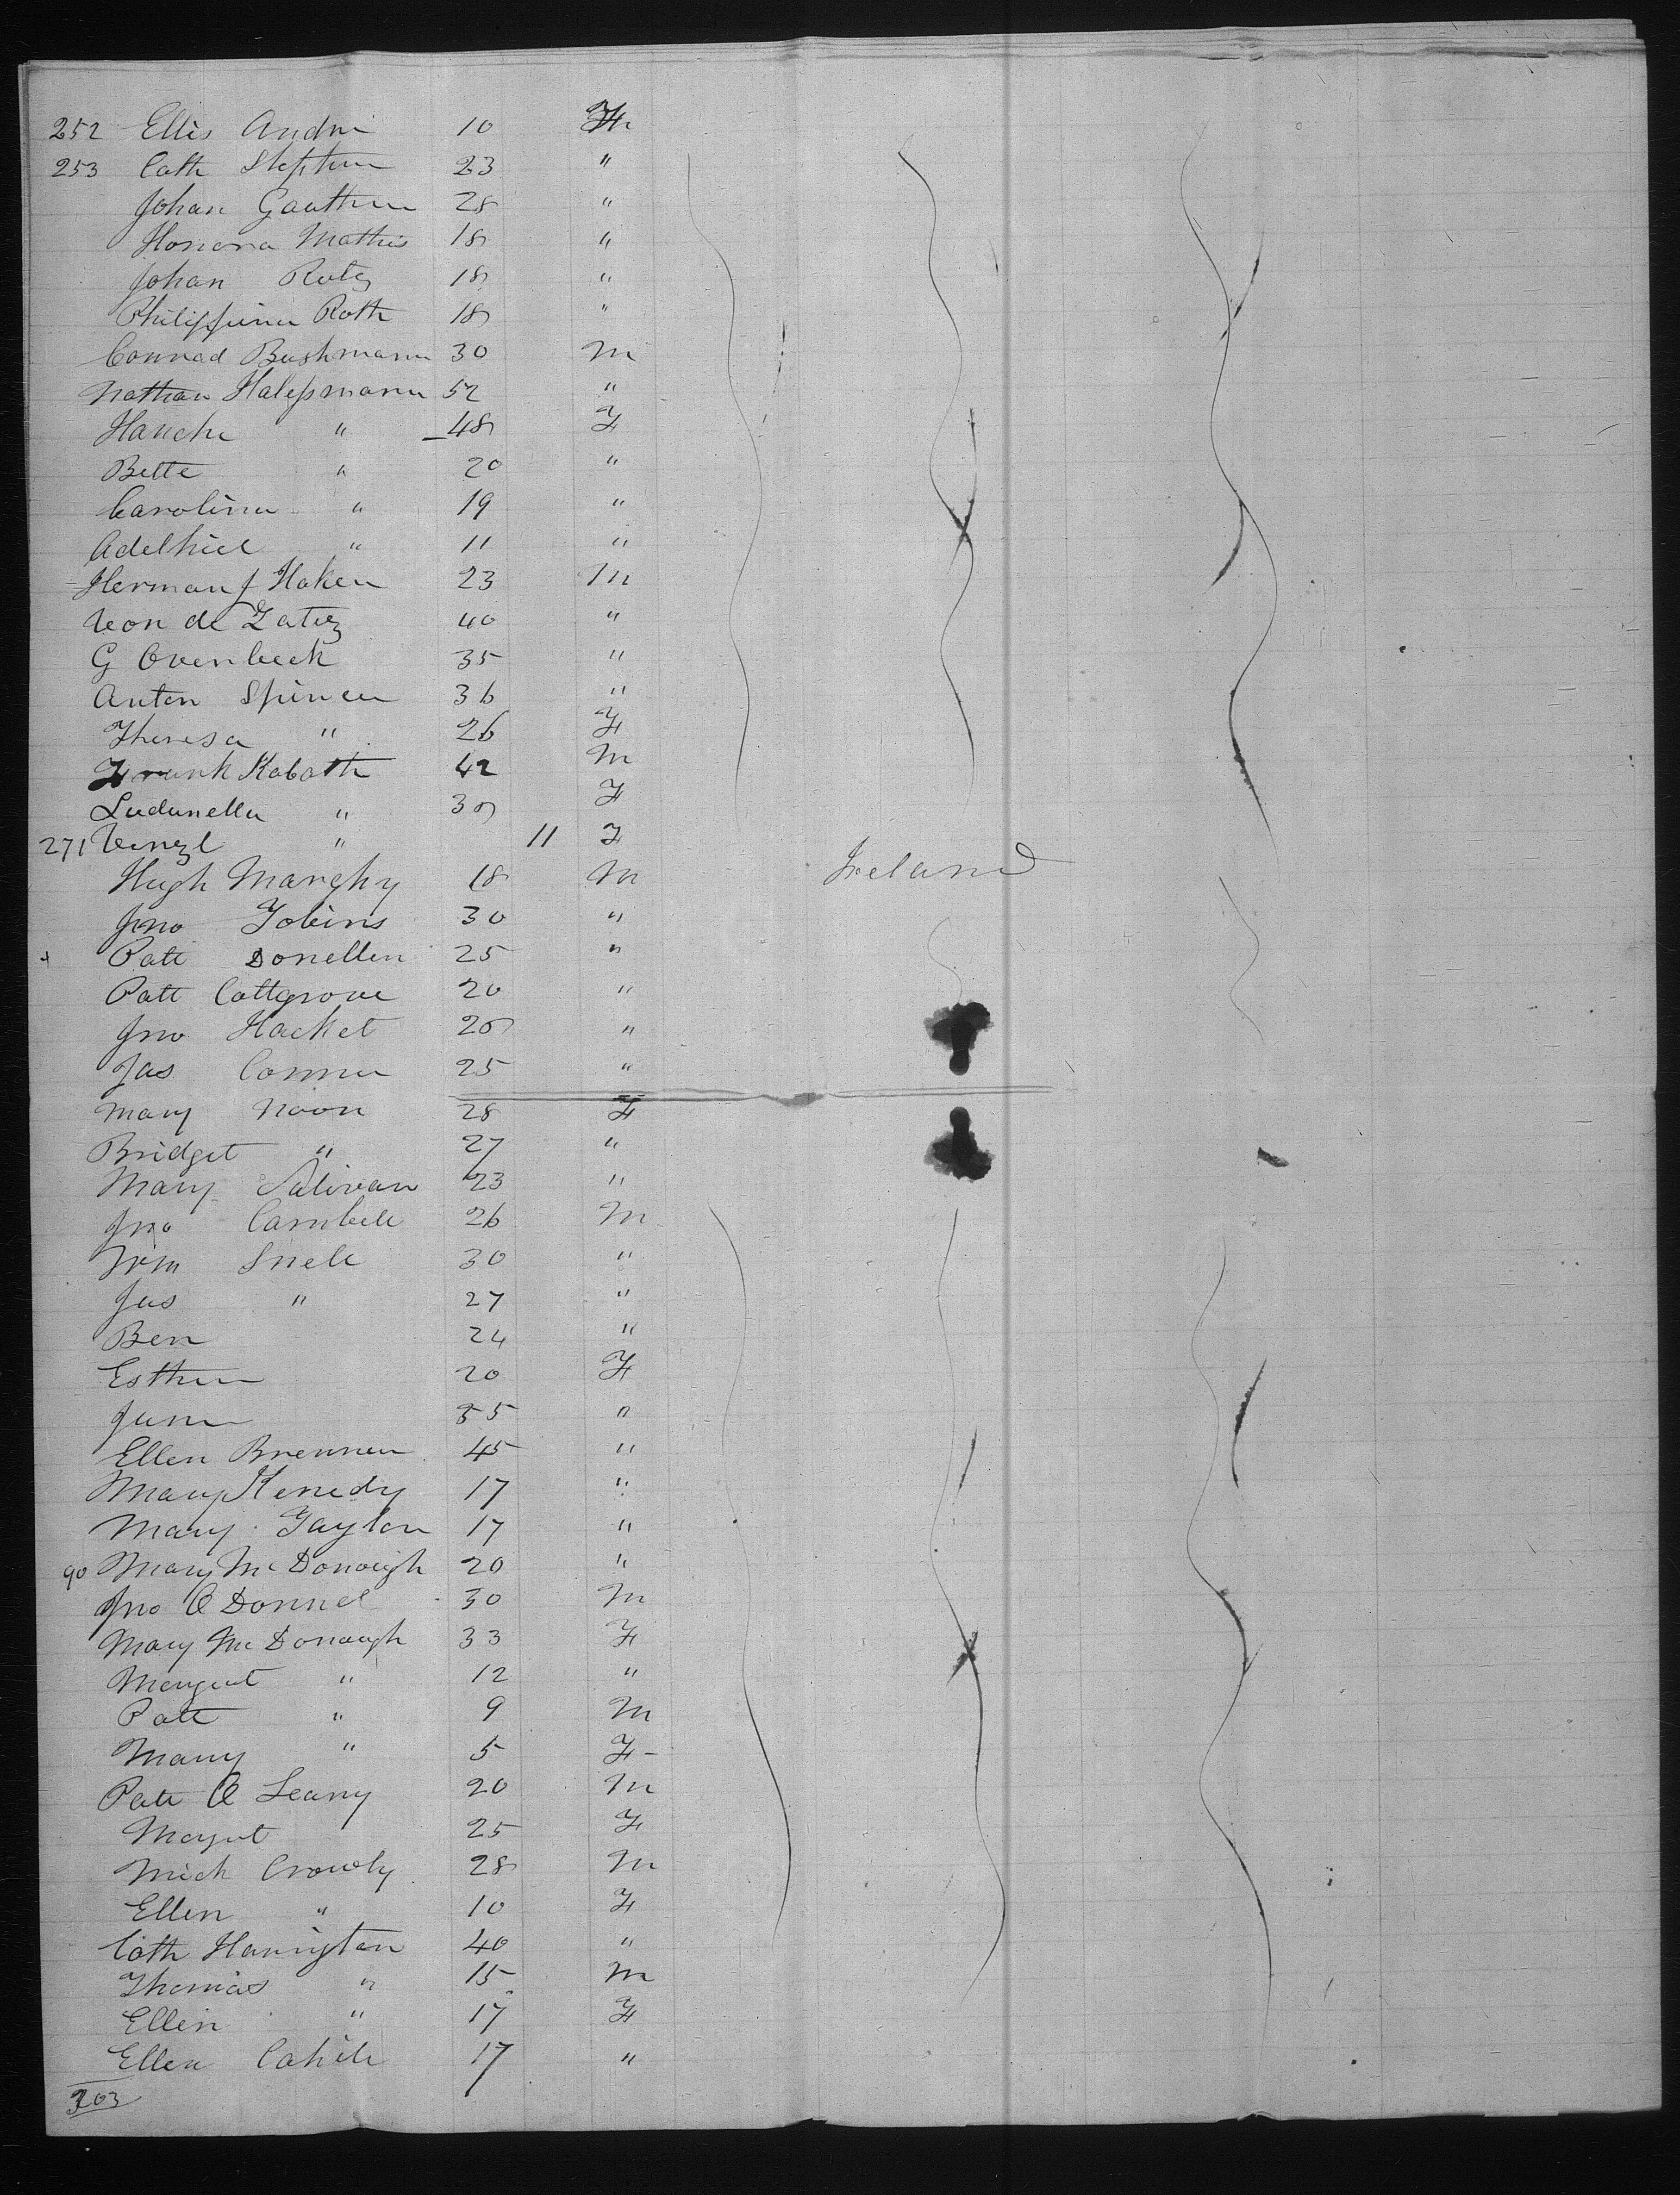 252 Ellis Andrı 10 F
253 Cath Stephen 23 "
Johan Gauthier 28 "
Honora Mathis 18 "
Johan Rutz 18 "
Philippina Roth 18 "
Conrad Bushmann 30 M
Nathan Halepmann 52 "
Hanche " 48 F
Bette " 20 "
Carolina " 19 "
Adelhiel " 11 "
Herman J Haken 23 M
Leon de 40 "
G Overbeck 35 "
Anton 36 "
Theresa " 26 F
Frank Kabath 42 M
Ludunella " 38 F
271 Venzl " 11 F
Hugh Marghy 18 M Ireland
Jno Tobins 30 "
Patt Donellen 25 "
Patt Coltgrove 20 "
Jno Hacket 28 "
Jas Conner 25 "
Mary Noon 28 F
Bridget " 27 "
Mary Sulivan 23 "
Jno Cambell 26 M
Wm Snell 30 "
Jas " 27 "
Ben 24 "
Esther 20 F
Jane 55 "
Ellen Brennen 45 "
Mary Kenedy 17 "
Mary Taylor 17 "
90 Mary McDonough 20 "
Jno O Donnel 30 M
Mary McDonough 33 F
Margret " 12 "
Patt " 9 M
Mary " 5 F
Patt O Leary 20 M
Margret 25 F
Mich Crowly 28 M
Ellen " 10 F
Cath Harrington 40 "
Thomas " 15 M
Ellen " 17 F
Ellen Cahill 17 "
303